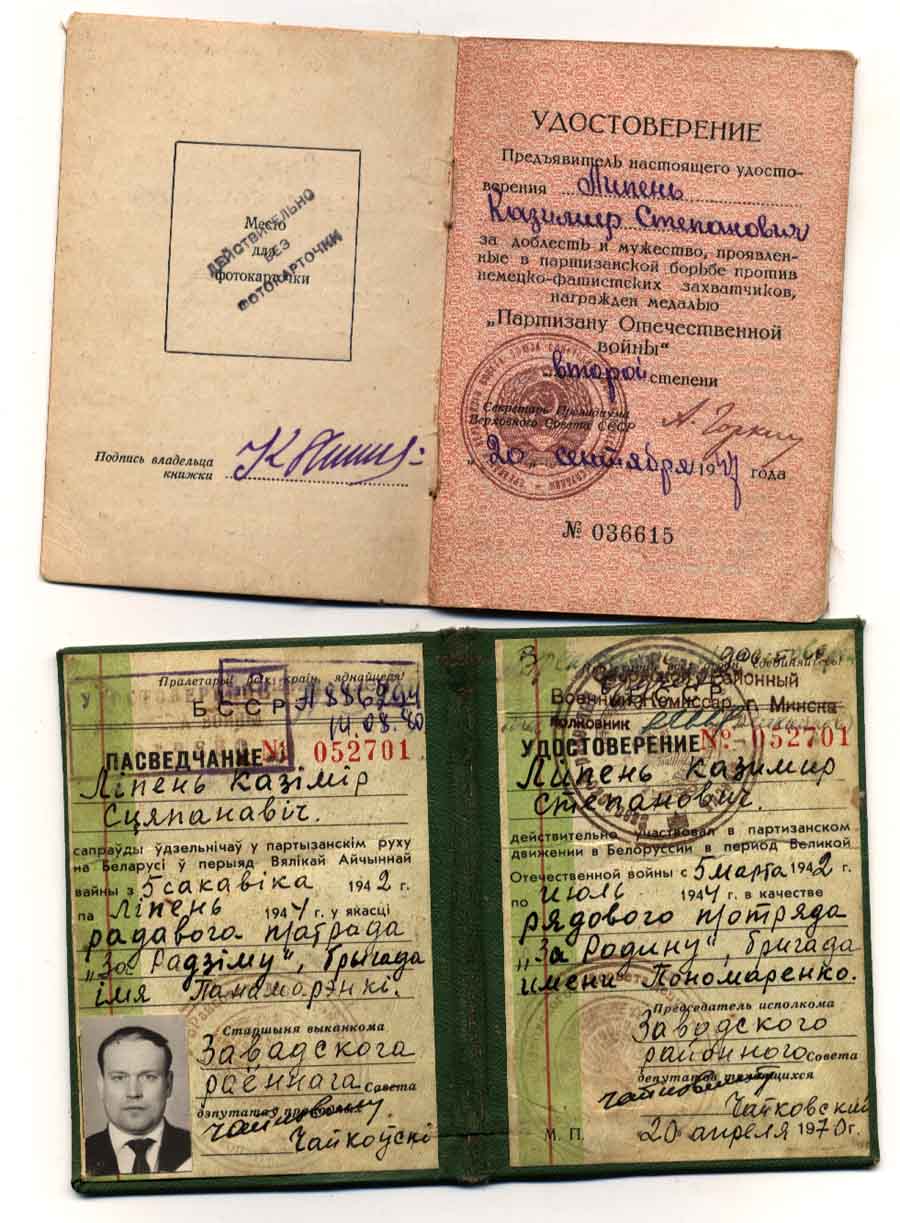 Место
для
фотокарточки
ДЕЙСТВИТЕЛЬНО
БЕЗ
ФОТОКАРТОЧКИ
Подпись владельца
книжки
УДОСТОВЕРЕНИЕ
Предъявитель настоящего удосто-
верения Липень
Казимир Степанович
за доблесть и мужество, проявлен-
ные в партизанской борьбе против
немецко-фашистских захватчиков,
награжден медалью
„Партизану Отечественной
войны“
второй степени
Секретарь Президиума
Верховного Совета СССР А. Горкин
„20„ сентября 1947 года
№ 036615
Пралетарыі ўсіх краін, яднайцеся!
БССР А 886294
14.08.80
ПАСВЕДЧАНИЕ № 052701
Ліпень Казімір
Сцяпанавіч.
сапраўды ўдзельнічаў у партызанскім руху
на Беларусі ў перыяд Вялікай Айчыннай
вайны з 5 сакавіка 1942 г.
па ліпень 1944 г. у якасці
радавога п/атрада
„За Радзіму“, брыгада
імя Панамарэнкі.
Старшыня выканкома
Завадскога
раённага Савета
дэпутатаў
Чайкоўскі
Пролетарии всех стран, соединяйтесь!
районный
БССР
Военный Комиссар г. Минска
полковник
УДОСТОВЕРЕНИЕ № 052701
Липень Казимир
Степанович.
действительно участвовал в партизанском
движении в Белоруссии в период Великой
Отечественной войны с 5 марта 1942 г.
по июль 1944 г. в качестве
рядового п/отряда
„За Родину“, бригада
имени Пономаренко.
Председатель исполкома
Заводского
районного Совета
депутатов трудящихся
Чайковский
М. П. 20 апреля 1970 г.